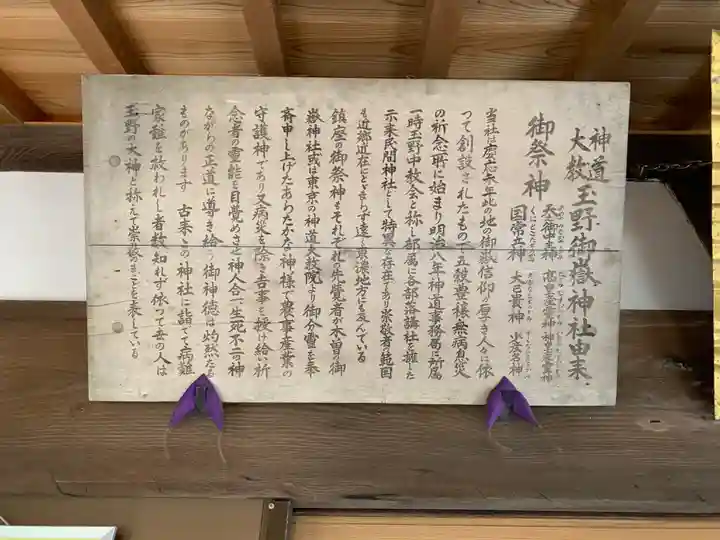 神道大教 玉野御嶽神社由来
御祭神 天御中主神 高皇産霊神 神皇産霊神
国常立神 大己貴神 少彦名神
当社は慶応末年此の地の御嶽信仰の厚き人々に依
って創設されたもので五穀豊穣無病息災
の祈念所に始まり明治八年神道事務局に所属
一時玉野中教会と称し部属に各部落講社を擁した
示来民間神社として特異な存在であり崇敬者の範囲
も近郷近在にとどまらず遠く東濃地方にも及んでいる
鎮座の御祭神もそれぞれの先覚者が木曽の御
嶽神社或は東京の神道大教院より御分霊を奉
斎申し上げたあらたかな神様で農事産業の
守護神であり又病災を除き吉事を授け給い祈
念者の霊能を目覚めさせ神人合一生死不二の神
ながらの正道に導き給う御神徳は灼然たる
ものがあります 古来この神社に詣でて病難
家難を救われし者数知れず依って世の人は
玉野の大神と称えて崇敬のまことを表している